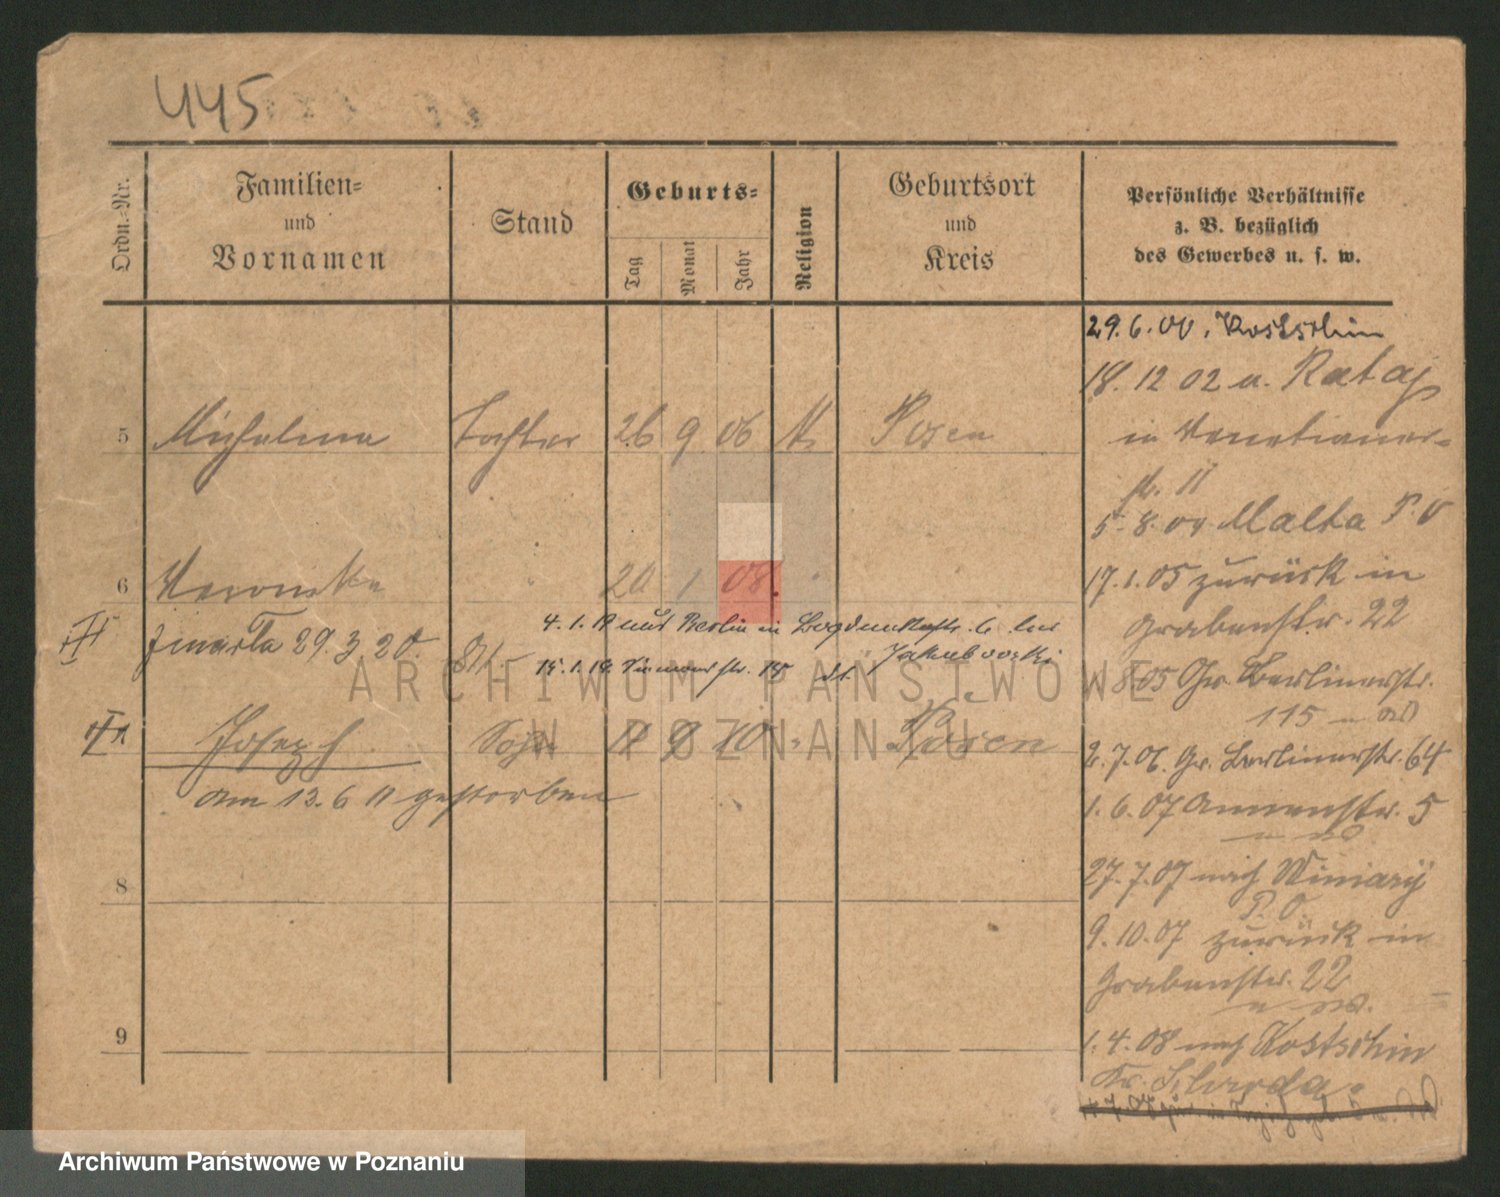 445
Ordn.-Nr.
Familien-
und
Vornamen
Stand
Geburts-
Tag
Monat
Jahr
Religion
Geburtsort
und
Kreis
Persönliche Verhältnisse
z. B. bezüglich
des Gewerbes u. s. w.
29.6.00. Kostschin
18.12 02 u. Rataj
in Venetianer-
str. 11
5 Michalina Tochter 26 9 06 Posen
5.8.04 Malta P. O
6 Veronika 20 1 08.
17.1.05 zurück in
Grabenstr. 22
zmarła 29.3.20.
4.1.19 aus Berlin in
15.1.19
Jakubowski
8.05 Gr. Berlinerstr.
115
Josef Sohn 10 Posen
am 13.6 11 gestorben
2.7.06. Gr. Berlinerstr. 64
1.6.07 Annenstr. 5
8
27.7.07 nach Winiary
P. O.
9.10.07 zurück in
Grabenstr. 22
9
1.4.08 nach Kostschin
Kr. Schroda
ARCHIWUM PAŃSTWOWE
W POZNANIU
Archiwum Państwowe w Poznaniu